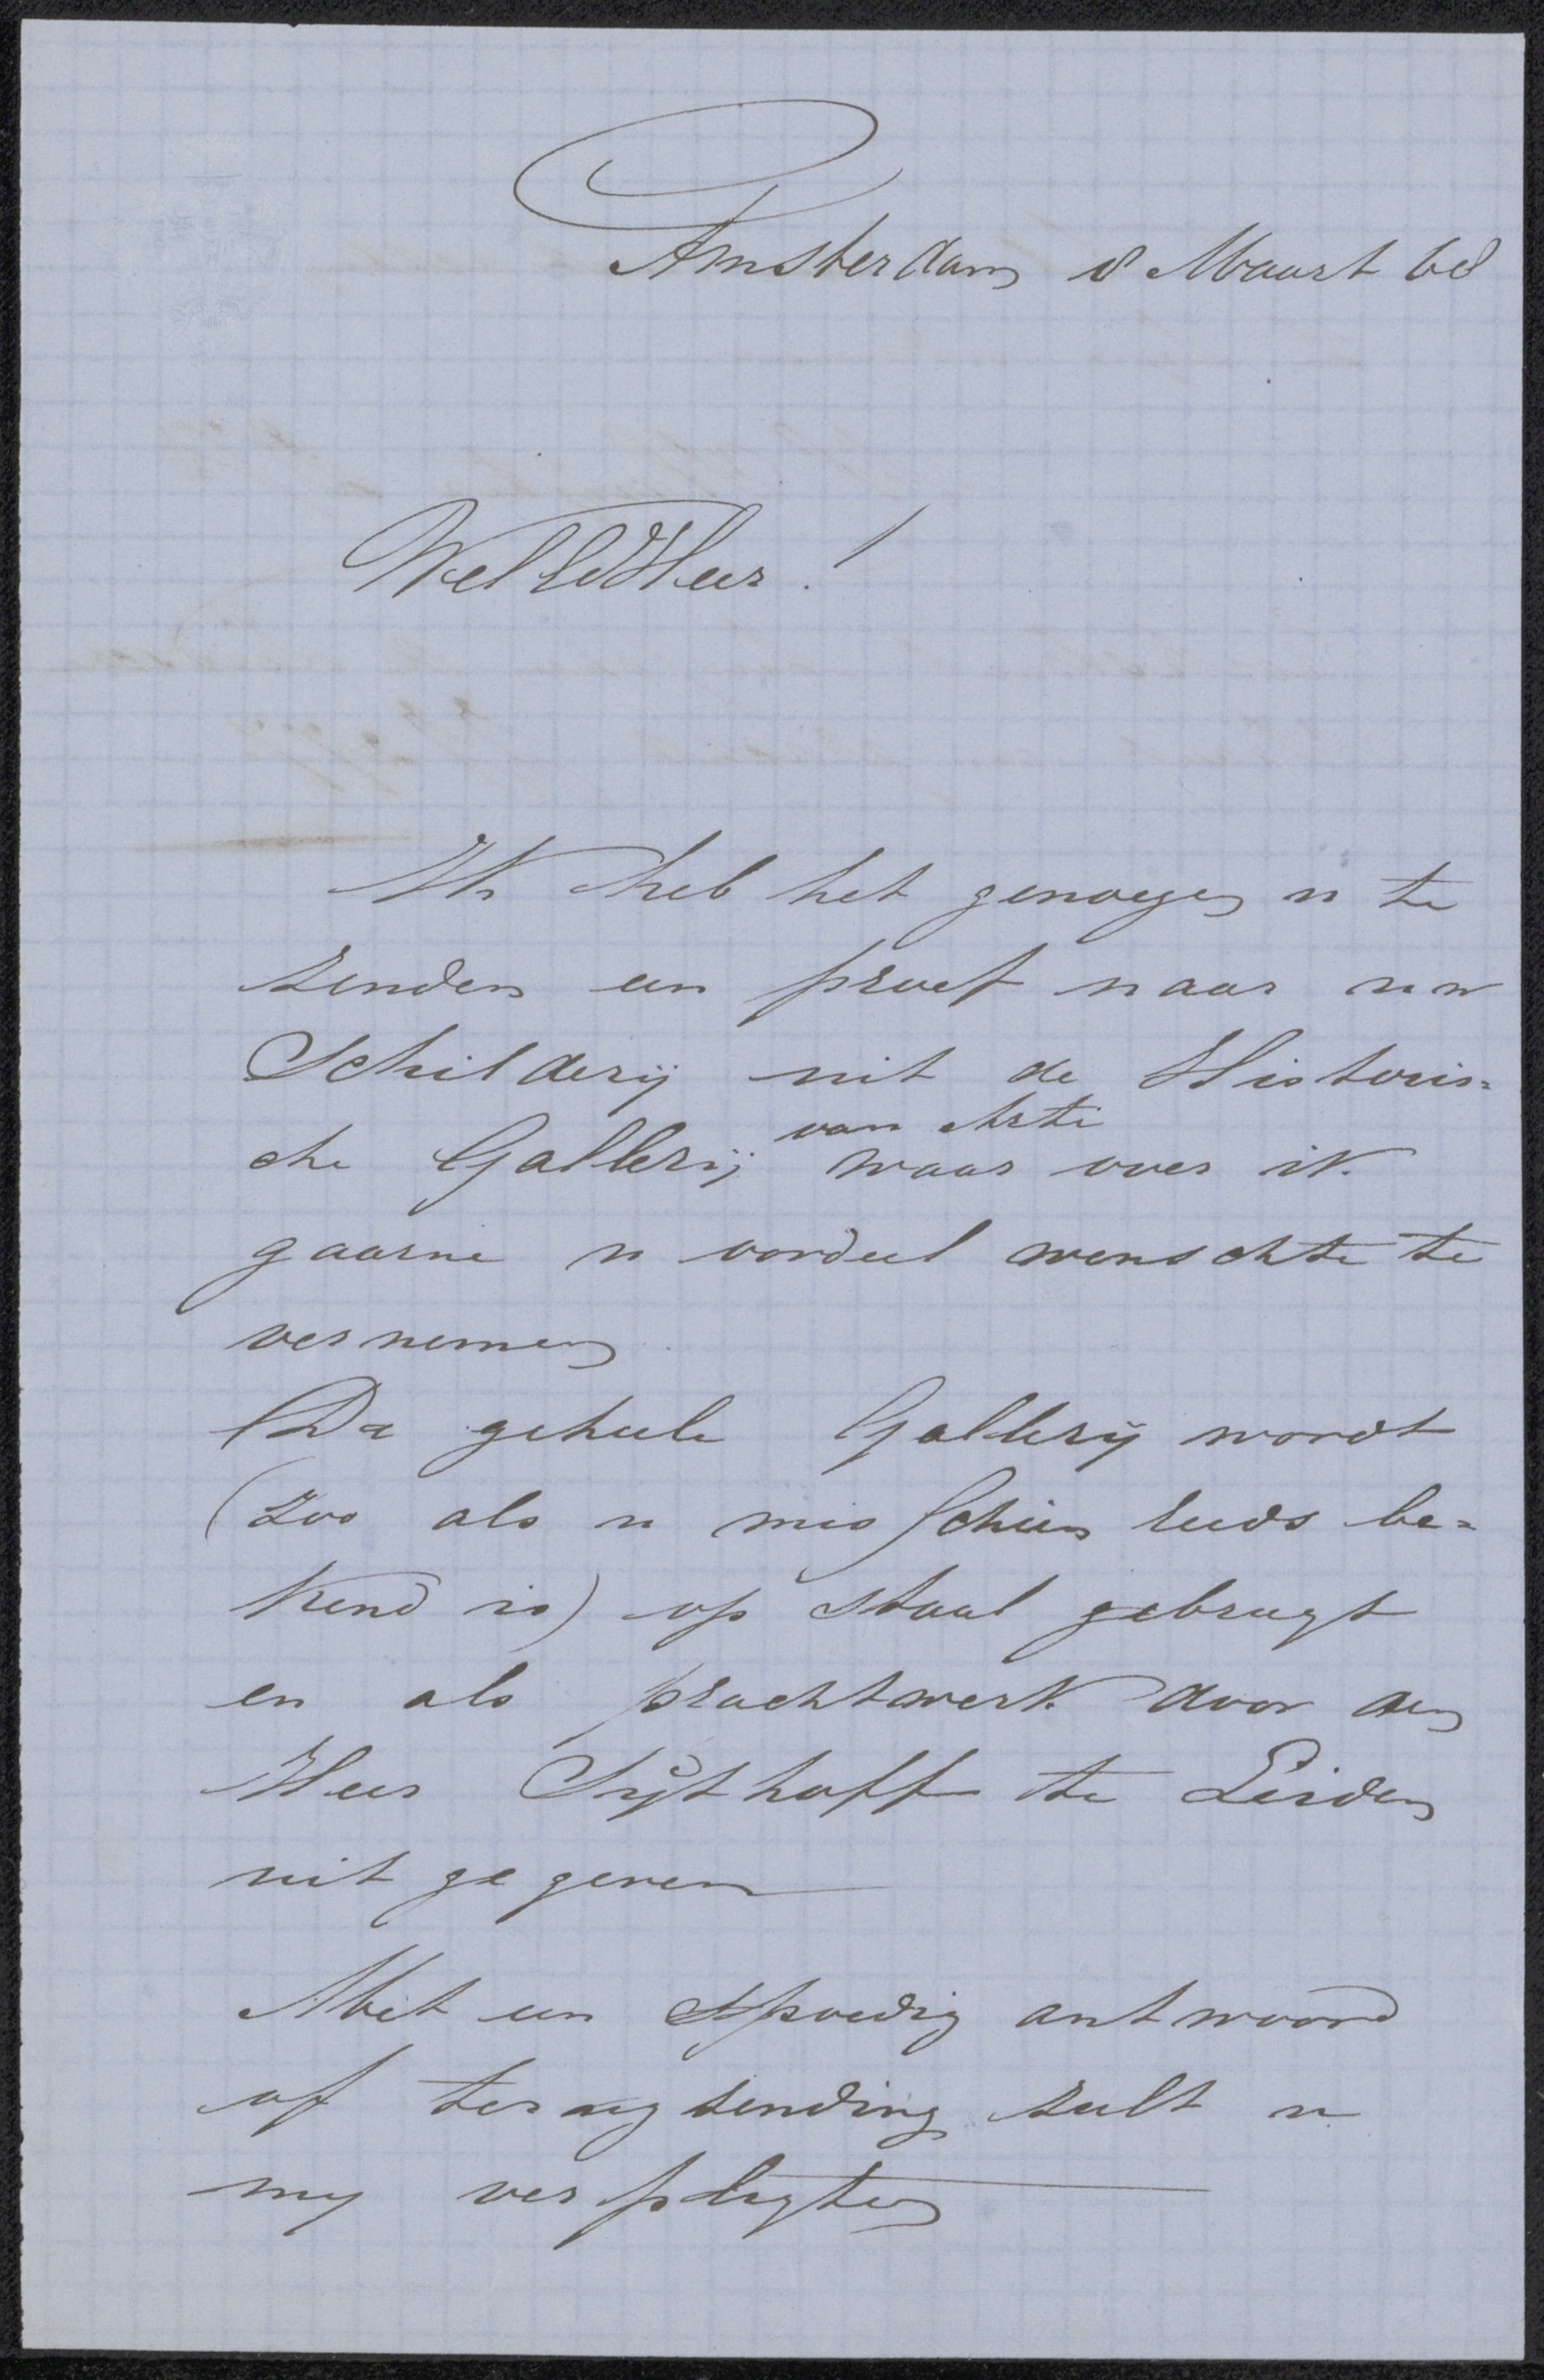 Amsterdam 8 Maart 68
WelEdHeer!
Ik heb het genoegen u te
zenden een proef naar uw
Schilderij uit de Historis=
che Gallerij van Arti waar over ik
gaarne u oordeel wenschte te
vernemen
De geheele Gallerij wordt
(zoo als u misschien reeds be=
kend is) op staal gebragt
en als prachtwerk door den
Heer Sijthoff te Leiden
uit gegeven
Met een spoedig antwoord
of terugzending zult u
my verpligten